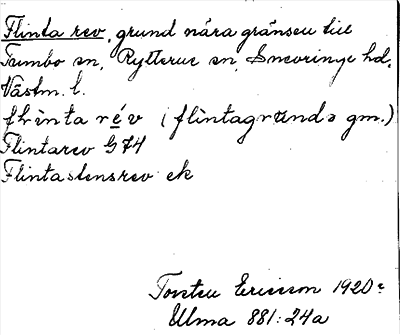 Flinta rev, grund nära gränsen till
Tumbo sn, Rytterne sn, Snevringe hd,
Västm. l.
flinta rév (flintagrundə gm.)
Flintarev G74
Flintastensrev ek
Torsten Ericsson 1920
Ulma 881:24a